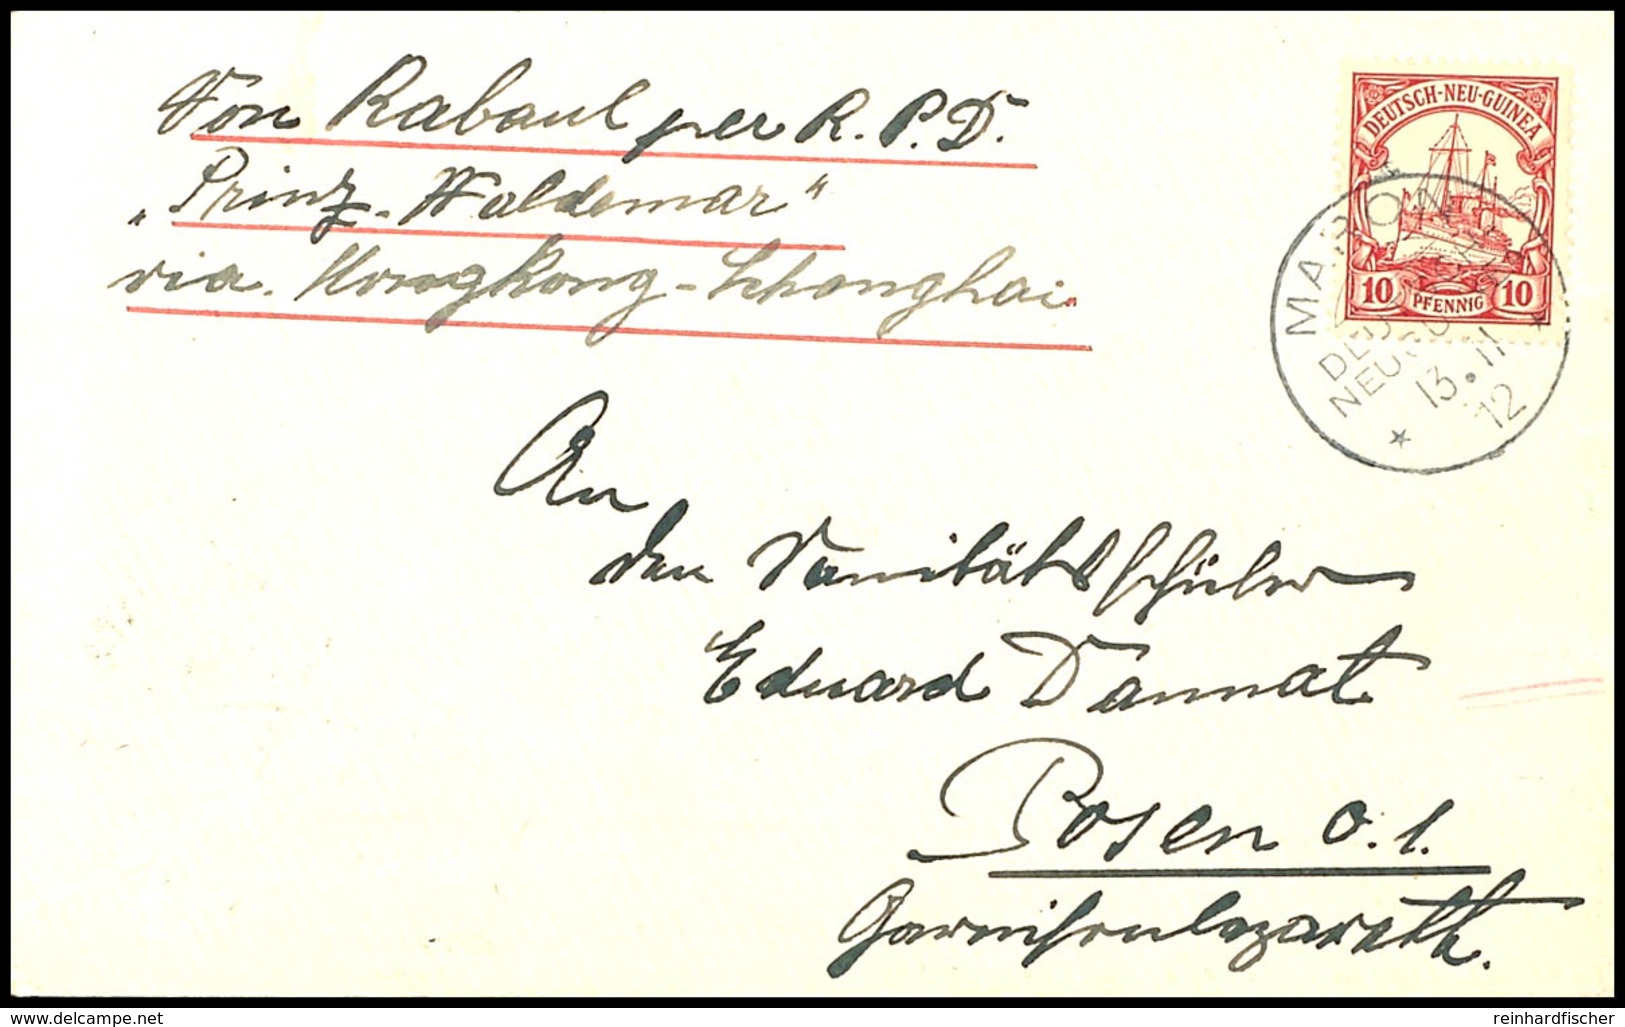 Von Rabaul per R.P.D.
„Prinz-Waldemar“
via. Hongkong-Schanghai.
DEUTSCH-NEU-GUINEA
10 PFENNIG 10
MARON
DEUTSCH
NEUGUINEA
13.11
12
An
den Sanitätsschüler
Eduard Dannat
Posen o.1.
Garnisonlazarett.
www.delcampe.net
reinhardfischer